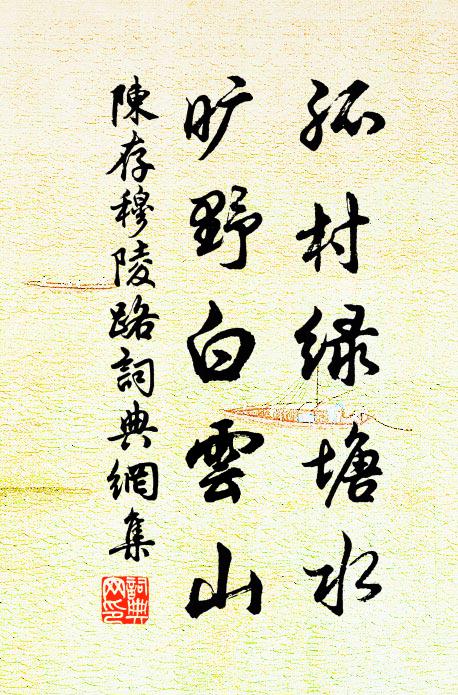 孤村绿塘水
旷野白雲山
陳存穆陵路詞典網集
詞典网印